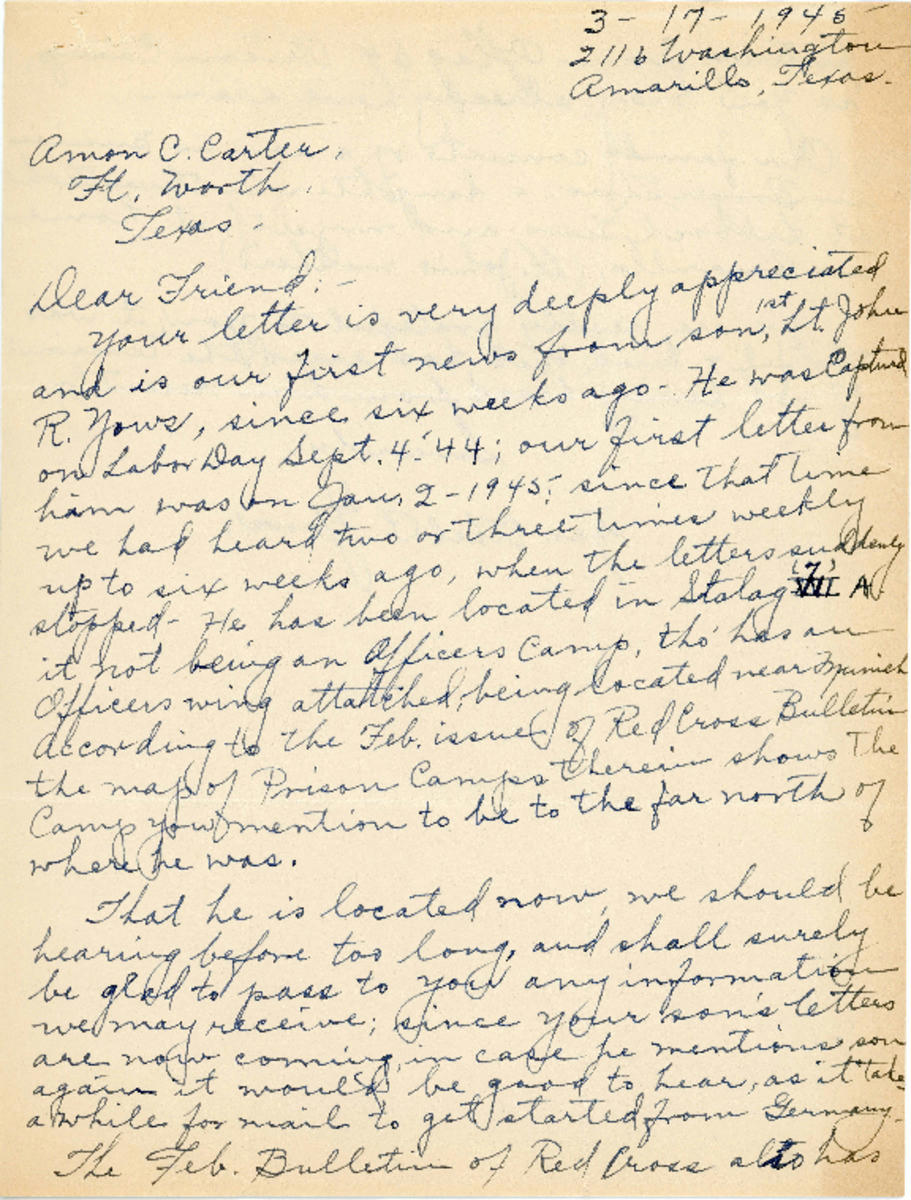 3 - 17 - 1945
2116 Washington
Amarillo, Texas.
Amon C. Carter,
Ft. Worth,
Texas.
Dear Friend: -
Your letter is very deeply appreciated
and is our first news from son, 1st Lt. John
R. Yows, since six weeks ago - He was Captured
on Labor Day Sept. 4 - '44; our first letter from
him was on Jan. 2 - 1945; since that time
we had heard two or three times weekly
up to six weeks ago, when the letters suddenly
stopped - He has been located in Stalag VII (7) A
it not being an Officers Camp, tho' has an
Officers wing attatched, being located near Munich
According to the Feb. issue of Red Cross Bulletin
the map of Prison Camps therein shows The
Camp you mention to be to the far north of
where he was.
That he is located now, we should be
hearing before too long, and shall surely
be glad to pass to you any information
we may receive; since your son's letters
are now coming, in case he mentions son
again it would be good to hear, as it take
a while for mail to get started from Germany.
The Feb. Bulletin of Red Cross also has